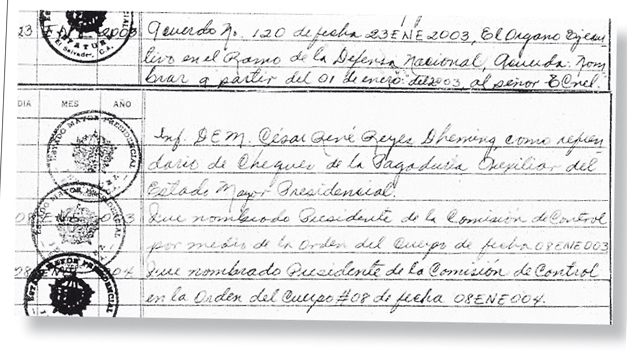 23 ENE 2003 Acuerdo No. 120 de fecha 23ENE2003, El Organo Ejecu-
tivo en el Ramo de la Defensa Nacional, Acuerda: Nom
brar a partir del 01 de enero del 2003, al señor TCnel.
DIA MES AÑO
Inf. DEM. César René Reyes Dheming como refren
dario de Cheques de la Pagaduría Auxiliar del
Estado Mayor Presidencial.
Fue nombrado Presidente de la Comisión de Control
por medio de la Orden del Cuerpo de fecha 08ENE003
Fue nombrado Presidente de la Comisión de Control
en la Orden del Cuerpo #08 de fecha 08ENE004.
ESTADO MAYOR PRESIDENCIAL
ESTADO MAYOR PRESIDENCIAL
ESTADO MAYOR PRESIDENCIAL
El Salvador, C.A.